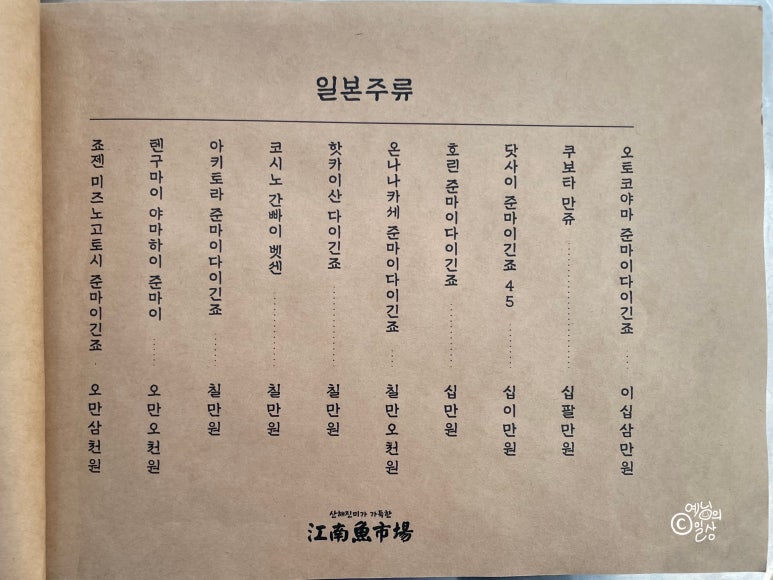 일본주류
오토코야마 준마이다이긴죠 .... 이십삼만원
쿠보타 만쥬 .................... 십팔만원
닷사이 준마이긴죠 45 ....... 십이만원
호린 준마이다이긴죠 ........... 십만원
온나나카세 준마이다이긴죠 .... 칠만오천원
핫카이산 다이긴죠 ............. 칠만원
코시노 간빠이 벳센 ............ 칠만원
아키토라 준마이다이긴죠 ...... 칠만원
텐구마이 야마하이 준마이 ..... 오만오천원
죠젠 미즈노고토시 준마이긴죠 . 오만삼천원
산해진미가 가득한
江南魚市場
© 예님의
일상